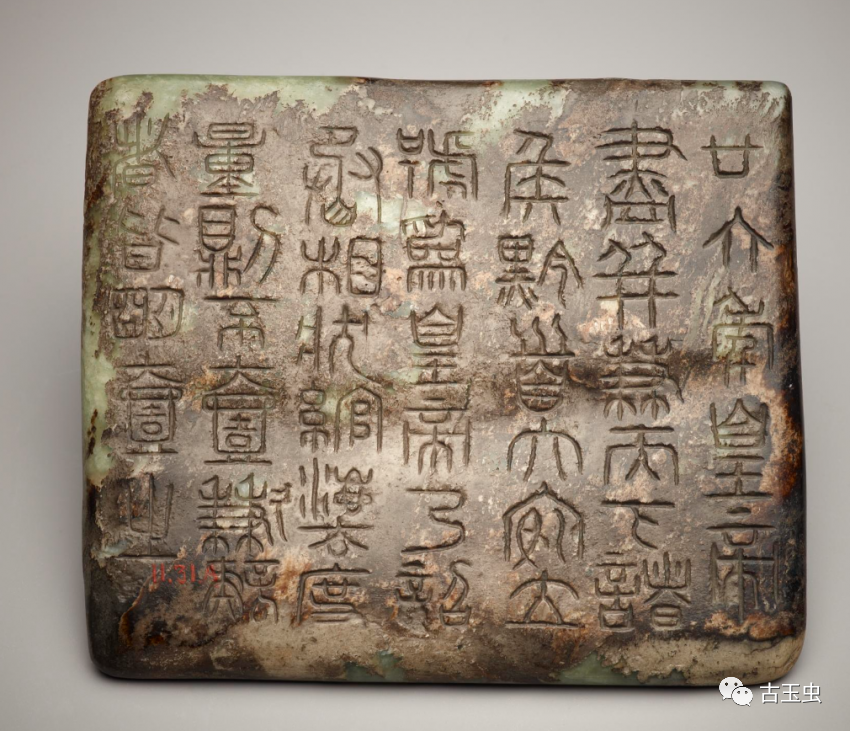 廿六年皇帝
盡并兼天下諸
侯黔首大安立
號為皇帝乃詔
丞相狀綰灋度
量則不壹歉疑
者皆明壹之
古玉虫